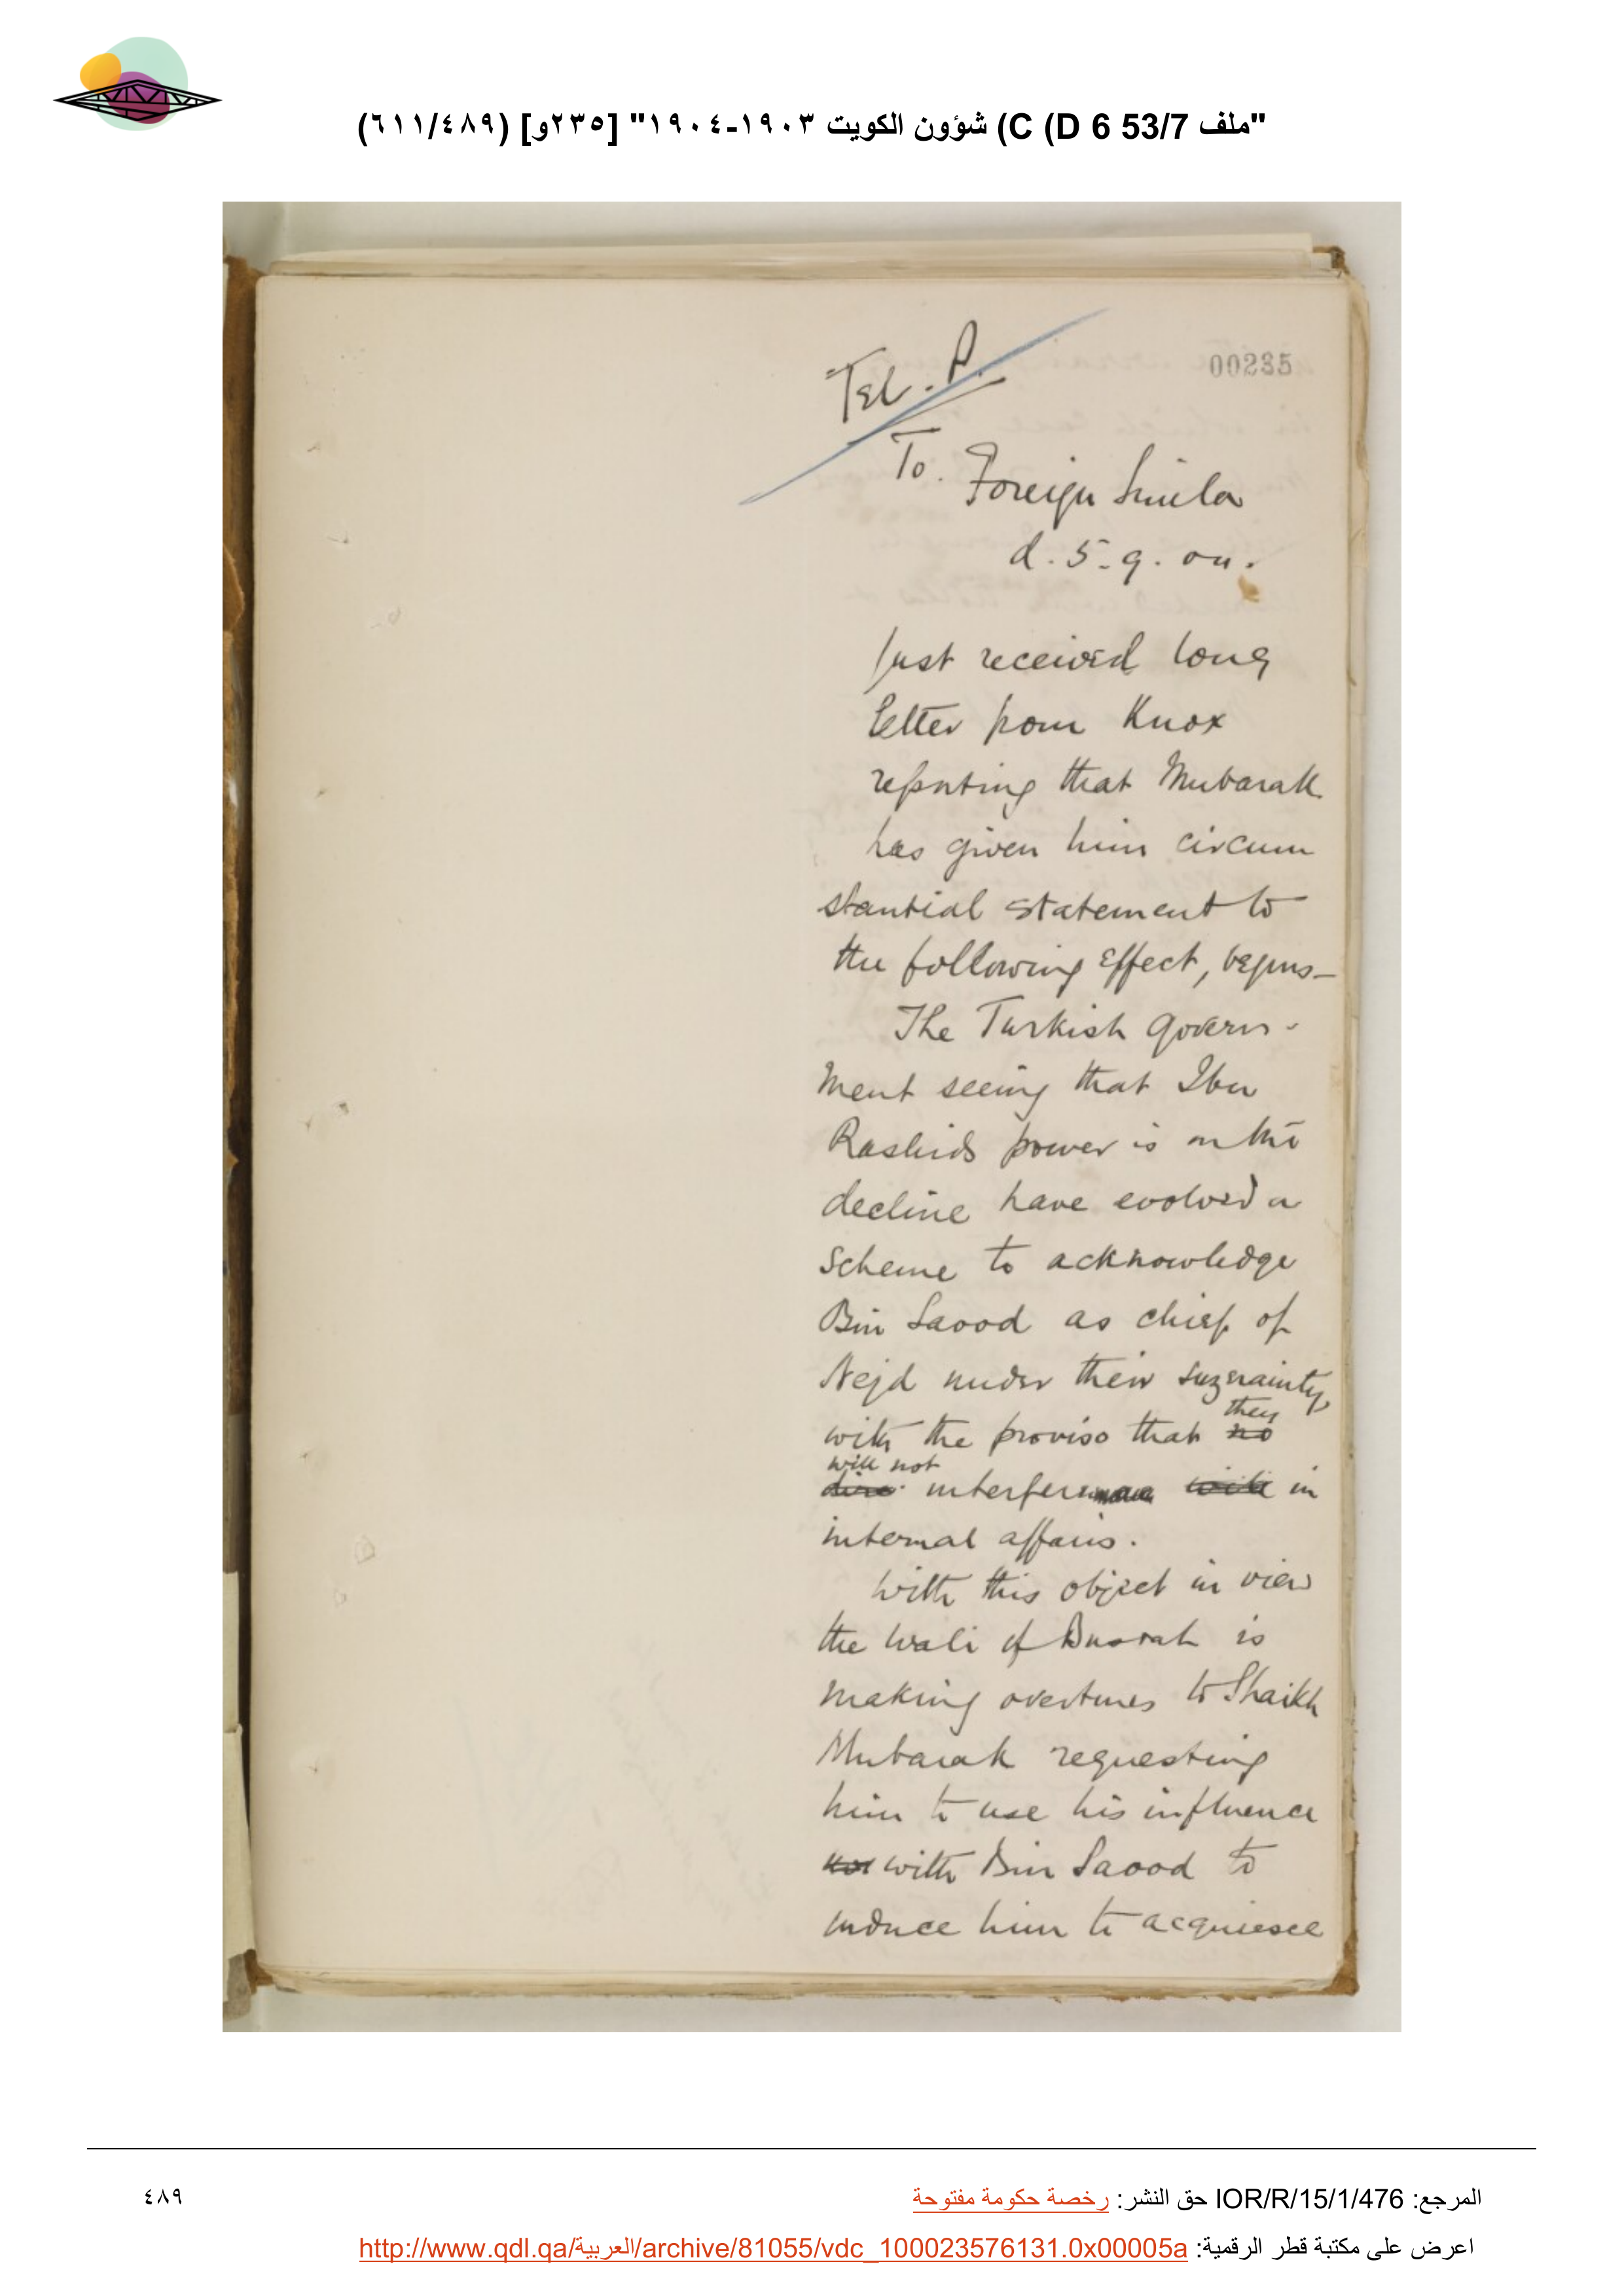 "ملف 53/7 C (D 6) شؤون الكويت ١٩٠٣-١٩٠٤" [٢٣٥و] (٦١١/٤٨٩)
00235
Tel. P.
To. Foreign Simla
d. 5-9. 04.
Just received long
letter from Knox
reporting that Mubarak
has given him circum
stantial statement to
the following effect, begins-
The Turkish Govern-
ment seeing that Ibn
Rashids power is on the
decline have evolved a
scheme to acknowledge
Bin Saood as chief of
Nejd under their suzerainty,
they
with the proviso that no
will not
dire interference with in
internal affairs.
With this object in view
the Wali of Busrah is
making overtures to Shaikh
Mubarak requesting
him to use his influence
with Bin Saood to
induce him to acquiesce
المرجع: IOR/R/15/1/476 حق النشر: رخصة حكومة مفتوحة
٤٨٩
اعرض على مكتبة قطر الرقمية: http://www.qdl.qa/العربية/archive/81055/vdc_100023576131.0x00005a